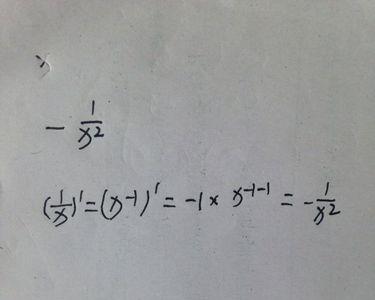 - 1/x²
(1/x)' = (x⁻¹)' = -1 × x⁻¹⁻¹ = - 1/x²